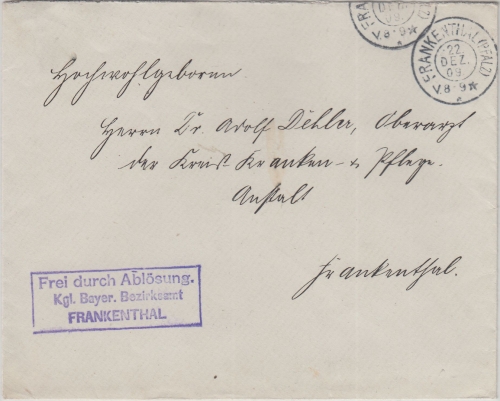 FRA
DEZ.
09.
V.8-9*
FRANKENTHAL (PFALZ)
22.
DEZ.
09
V.8-9*
Hochwohlgeboren
Herrn Dr. Adolf Dehler, Oberarzt
der Kreis-Kranken- & Pflege-
Anstalt
Frankenthal.
Frei durch Ablösung.
Kgl. Bayer. Bezirksamt
FRANKENTHAL